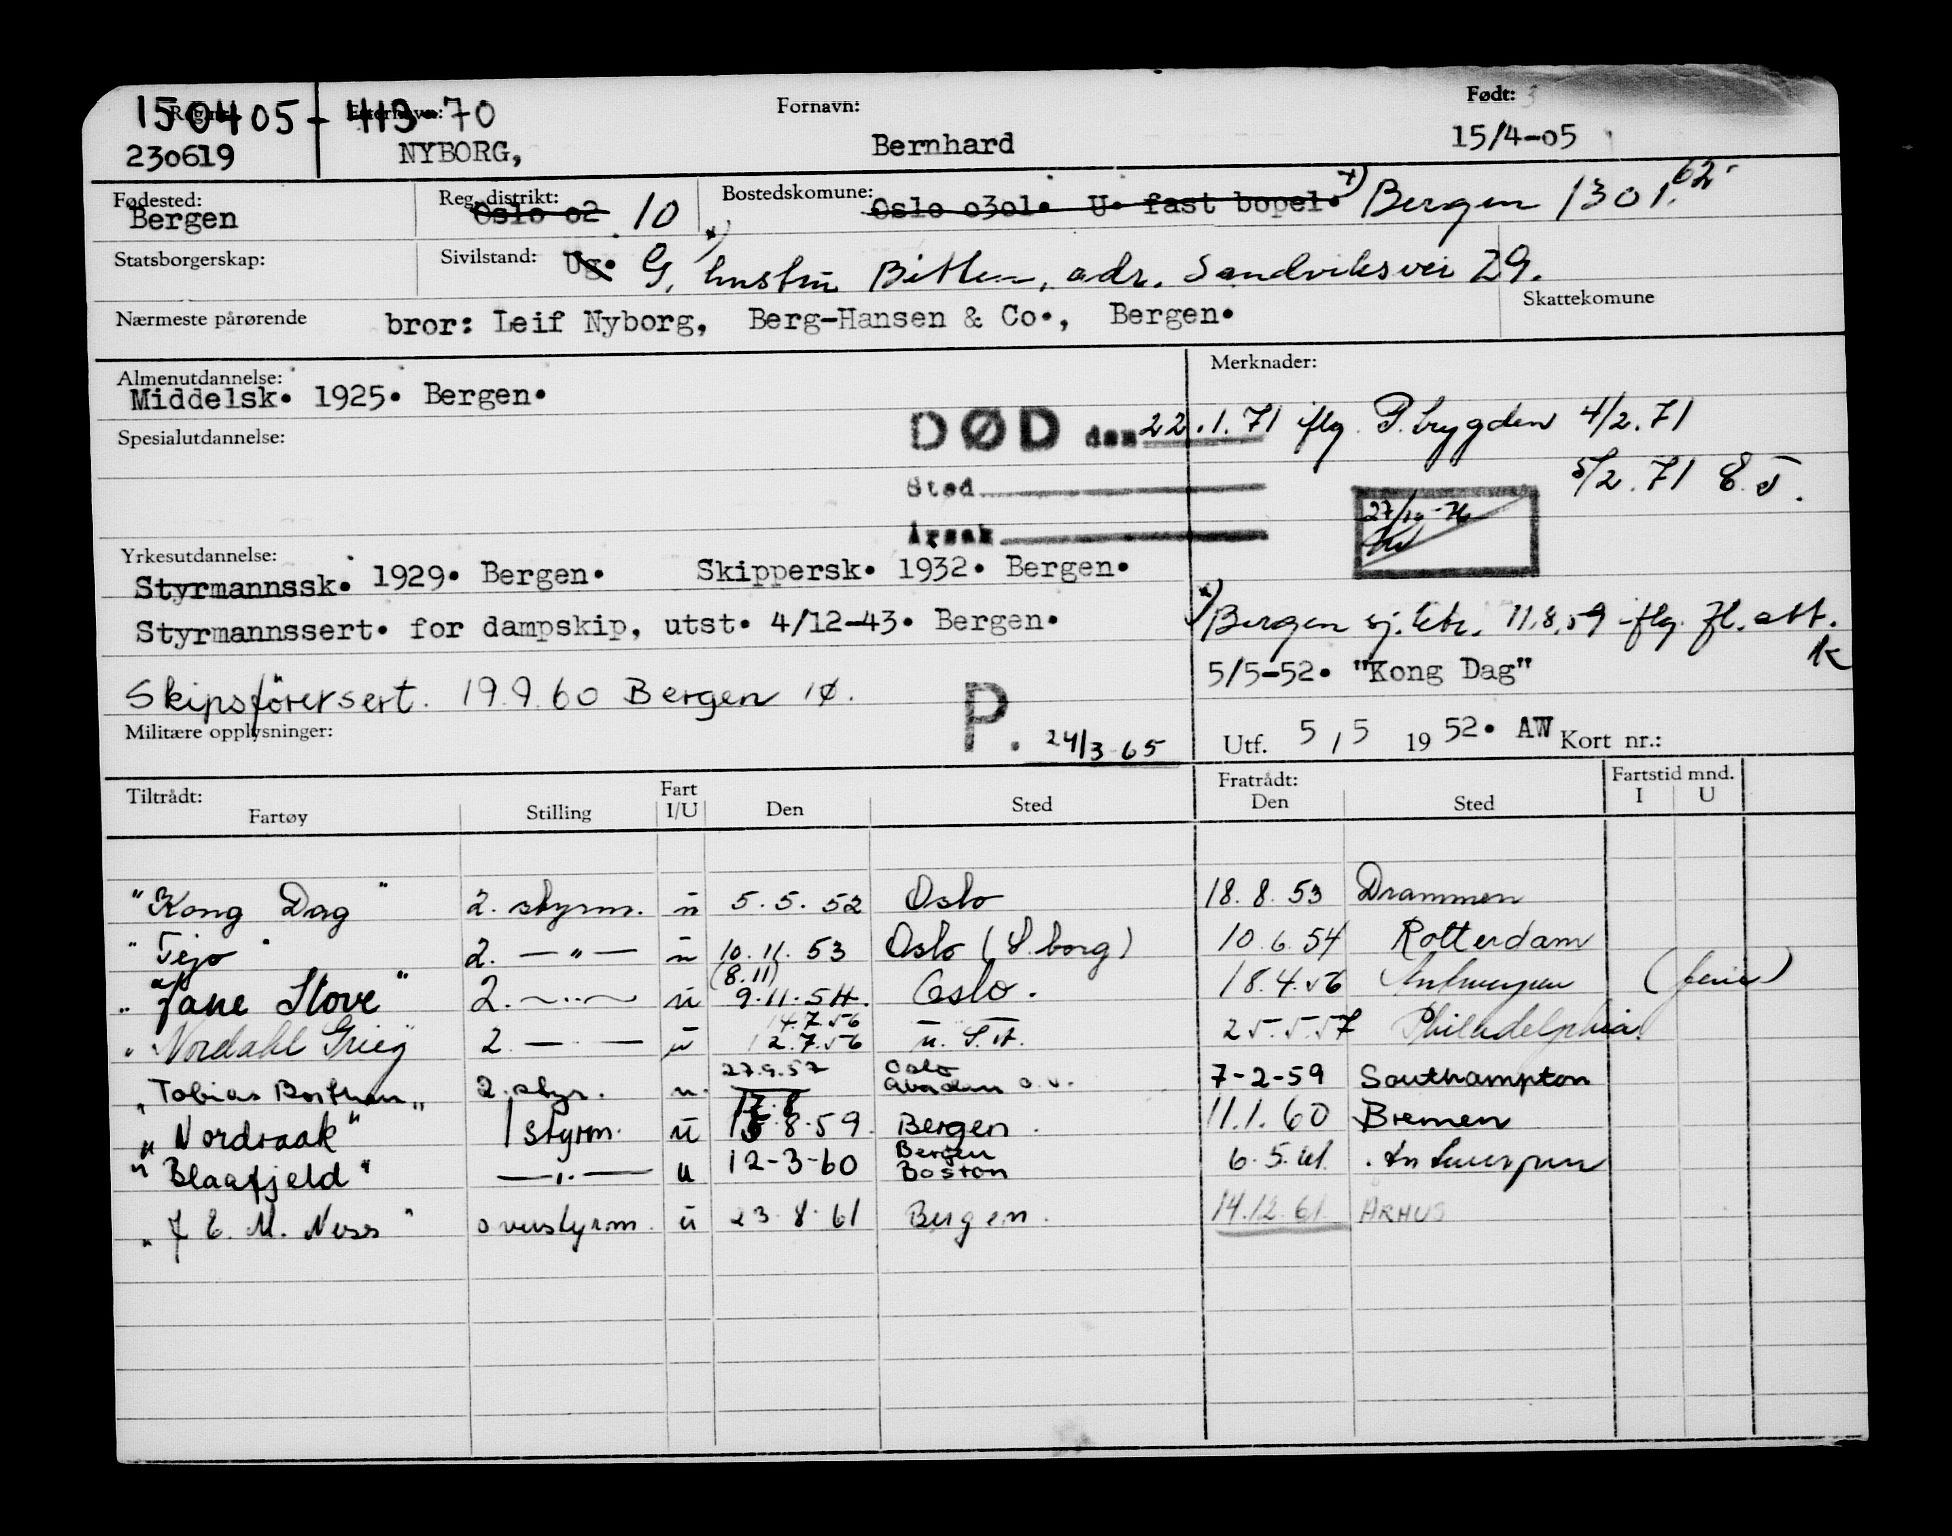 150405-41370
Reg.nr. Etternavn: Fornavn: Født:
230619 NYBORG, Bernhard 15/4-05
Fødested: Reg. distrikt: Bostedskomune:
Bergen Oslo o2 10 Oslo o3o1. U. fast bopel. x) Bergen 1301. 62
Statsborgerskap: Sivilstand: Ug. G, x) hustru Bitten, adr. Sandviksvei 29.
Nærmeste pårørende bror: Leif Nyborg, Berg-Hansen & Co., Bergen. Skattekomune
Almenutdannelse: Merknader:
Middelsk. 1925. Bergen.
Spesialutdannelse: DØD den 22.1.71 iflg. P. trygden 4/2.71
5/2.71
Sted
27/10-76
Årsak
Yrkesutdannelse:
Styrmannssk. 1929. Bergen. Skippersk. 1932. Bergen.
Styrmannssert. for dampskip, utst. 4/12-43. Bergen. x) Bergen sj.ktr. 11.8.59 iflg. fl. att.
K
5/5-52. "Kong Dag"
Skipsförersert. 19.9.60 Bergen
Militære opplysninger: P. 24/3-65 Utf. 5/5 1952. AW Kort nr.:
Tiltrådt: Fratrådt: Fartstid mnd.
Fartøy Stilling Fart I/U Den Sted Den Sted I U
"Kong Dag" 2. styrm. u 5.5.52 Oslo 18.8.53 Drammen
"Tejo" 2. —"— u 10.11.53 Oslo (S.borg) 10.6.54 Rotterdam
(8.11)
"Jane Stove" 2. —"— u 9.11.54. Oslo. 18.4.56 Antwerpen (ferie)
14.7.56
"Nordahl Grieg" 2 —"— u 12.7.56 25.5.57 Philadelphia.
27.9.57 Oslo
"Tobias Borthen" 2. styr. u. Abadan 7-2-59 Southampton
17.8
"Nordraak" 1 styrm. u 8.59. Bergen. 11.1.60 Bremen
Bergen
"Blaafjeld" —"— u 12-3-60 Boston 6.5.61. Antwerpen
"J E. M. Næss" overstyrm. u 23.8.61 Bergen. 14.12.61 ÅRHUS